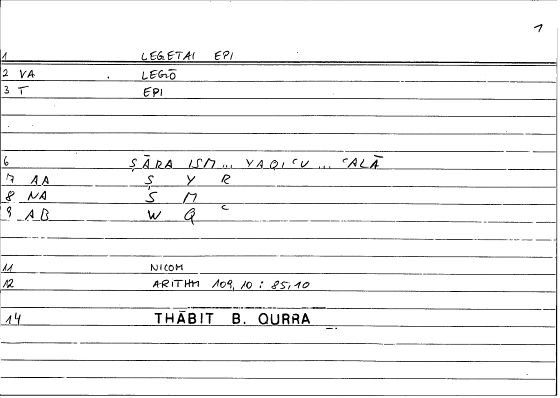 1
1 LEGETAI EPI
2 VA LEGŌ
3 T EPI
6 ṢĀRA ISM... YAQIʿU... ʿALĀ
7 AA Ṣ Y R
8 NA S M
9 AB W Q ʿ
11 NICOM
12 ARITHM 109,10 : 85,10
14 THĀBIT B. QURRA